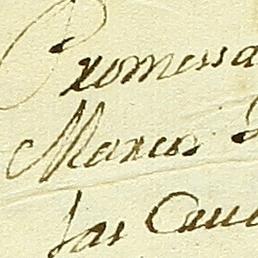 Promessa
Marcos
las Cau